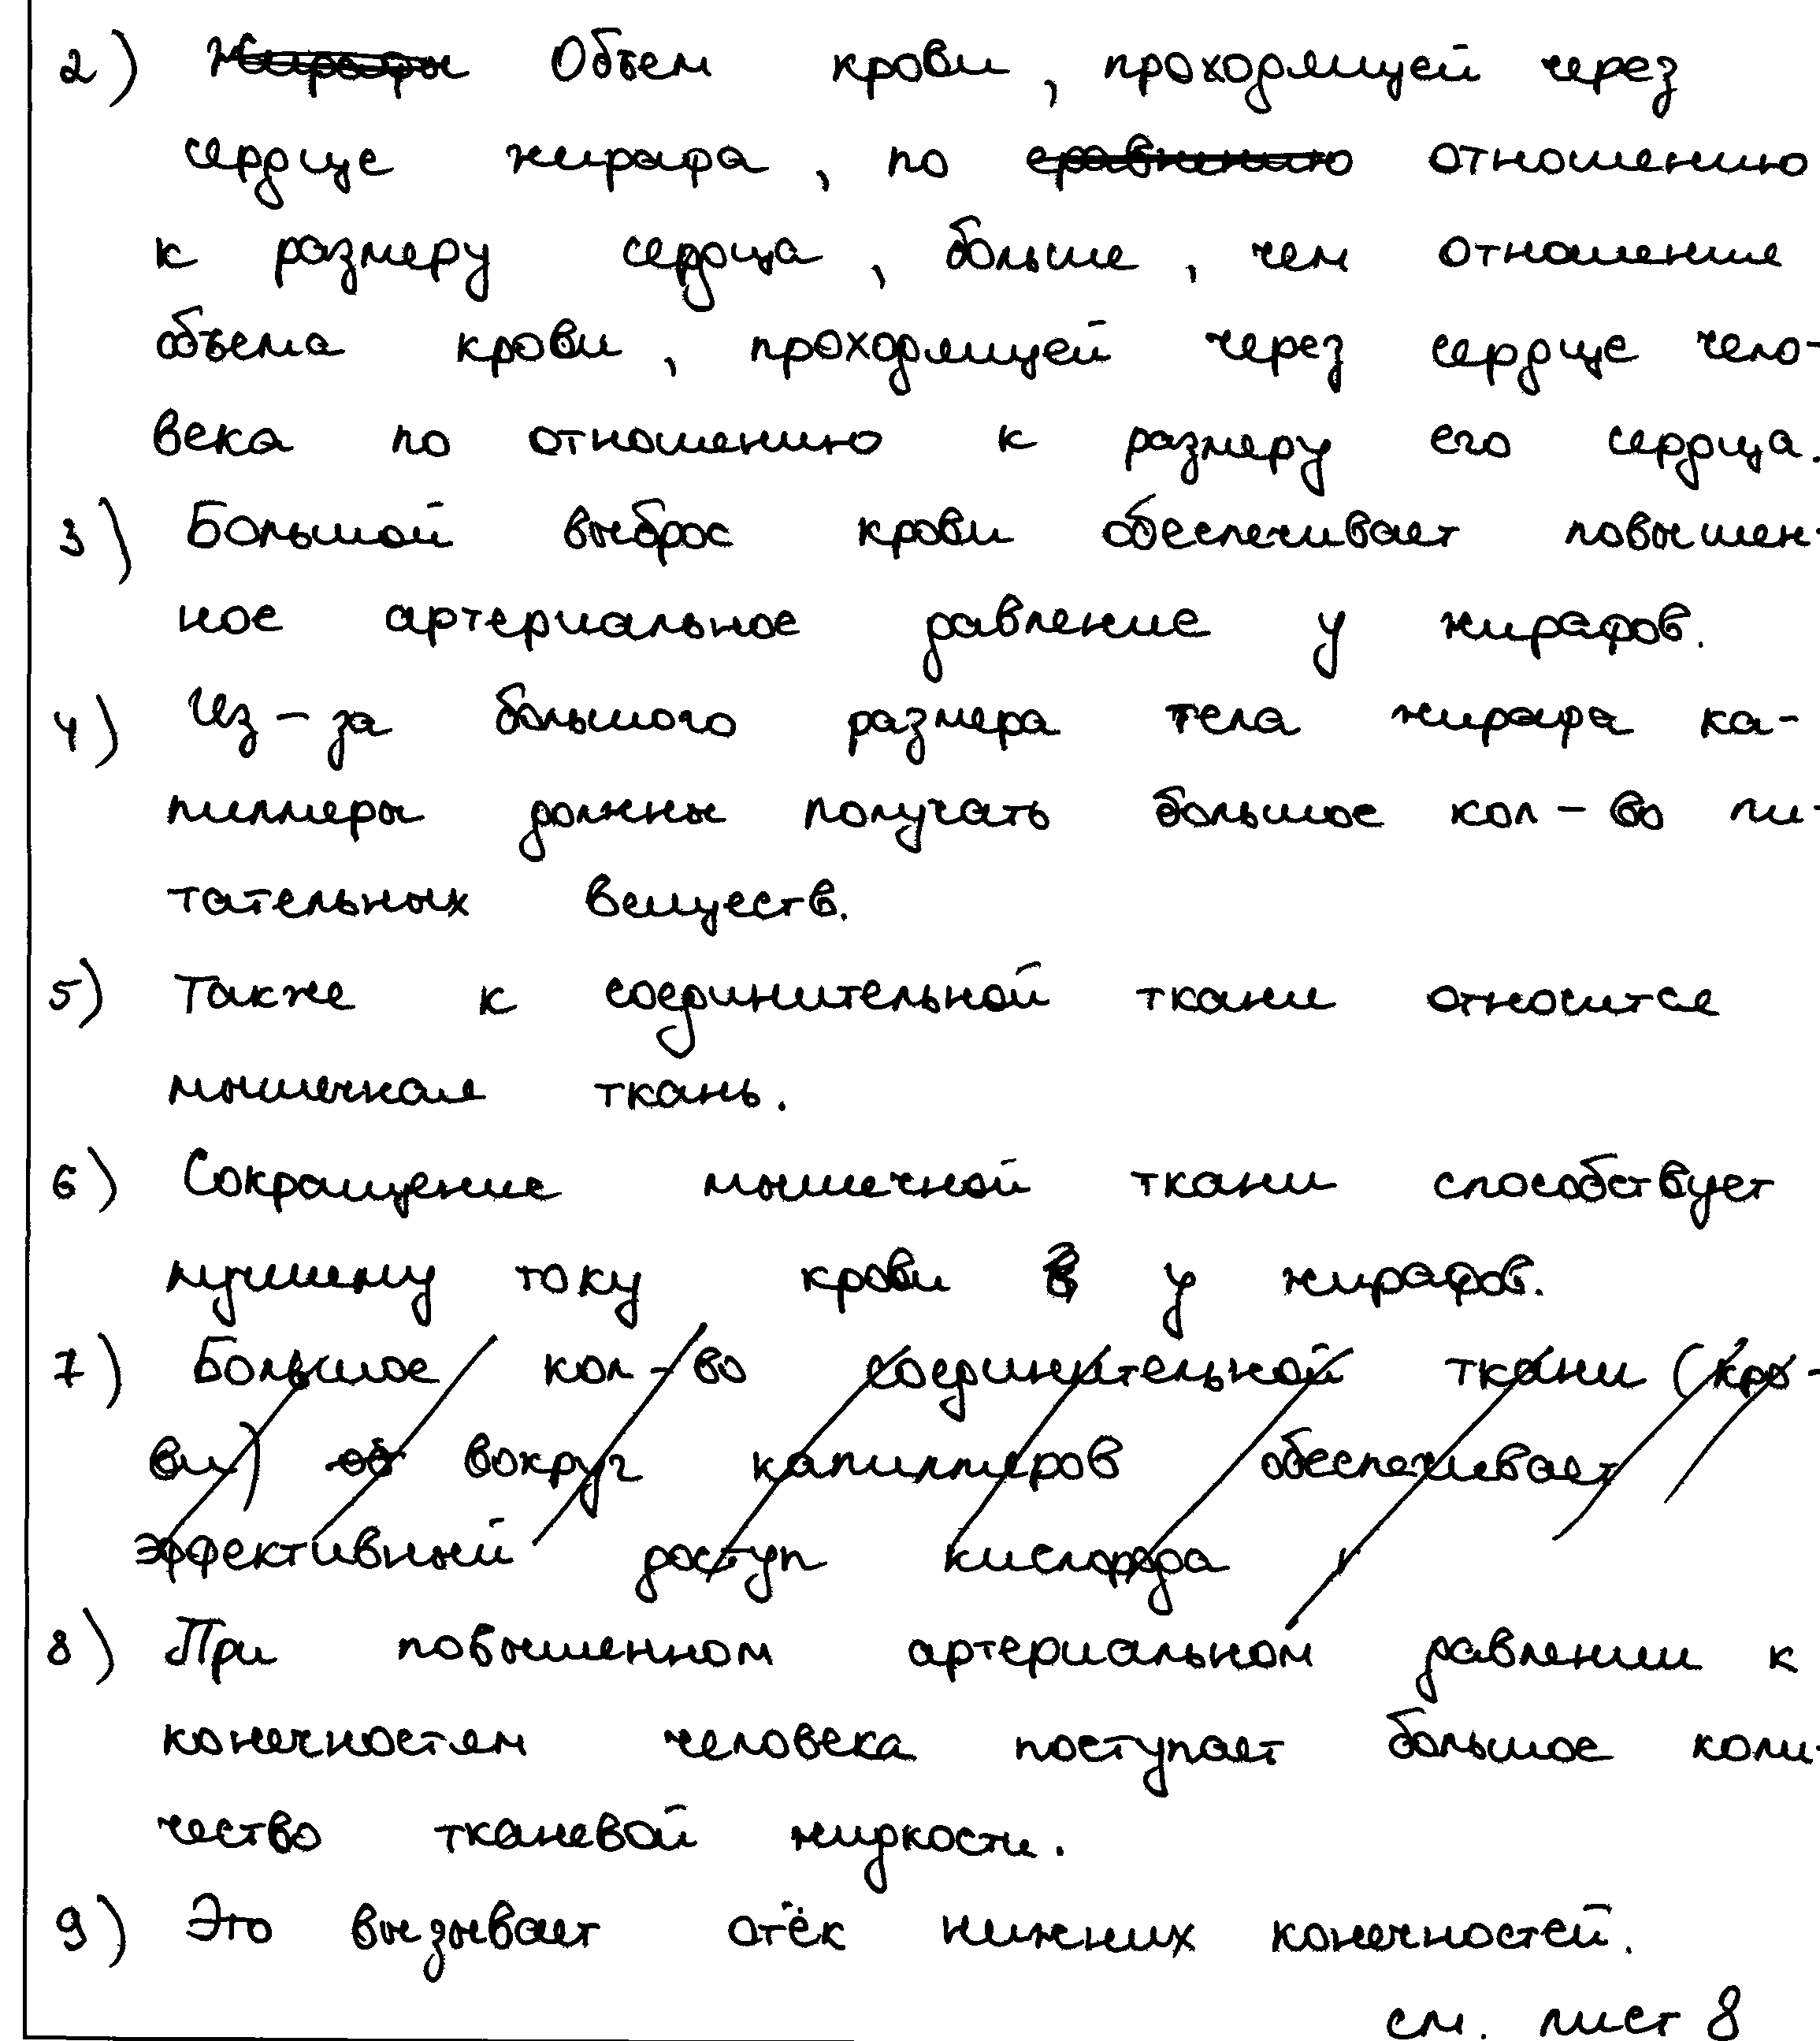 2) Жирафы Объем крови, проходящей через
сердце жирафа, по сравнению отношению
к размеру сердца, больше, чем отношение
объема крови, проходящей через сердце чело-
века по отношению к размеру его сердца.
3) Большой выброс крови обеспечивает повышен-
ное артериальное давление у жирафов.
4) Из-за большого размера тела жирафа ка-
пилляры должны получать большое кол-во пи-
тательных веществ.
5) Также к соединительной ткани относится
мышечная ткань.
6) Сокращение мышечной ткани способствует
лучшему току крови в у жирафов.
7) Большое кол-во соединительной ткани (кро-
ви) об вокруг капилляров обеспечивает
эффективный доступ кислорода
8) При повышенном артериальном давлении к
конечностям человека поступает большое коли-
чество тканевой жидкости.
9) Это вызывает отёк нижних конечностей.
см. лист 8